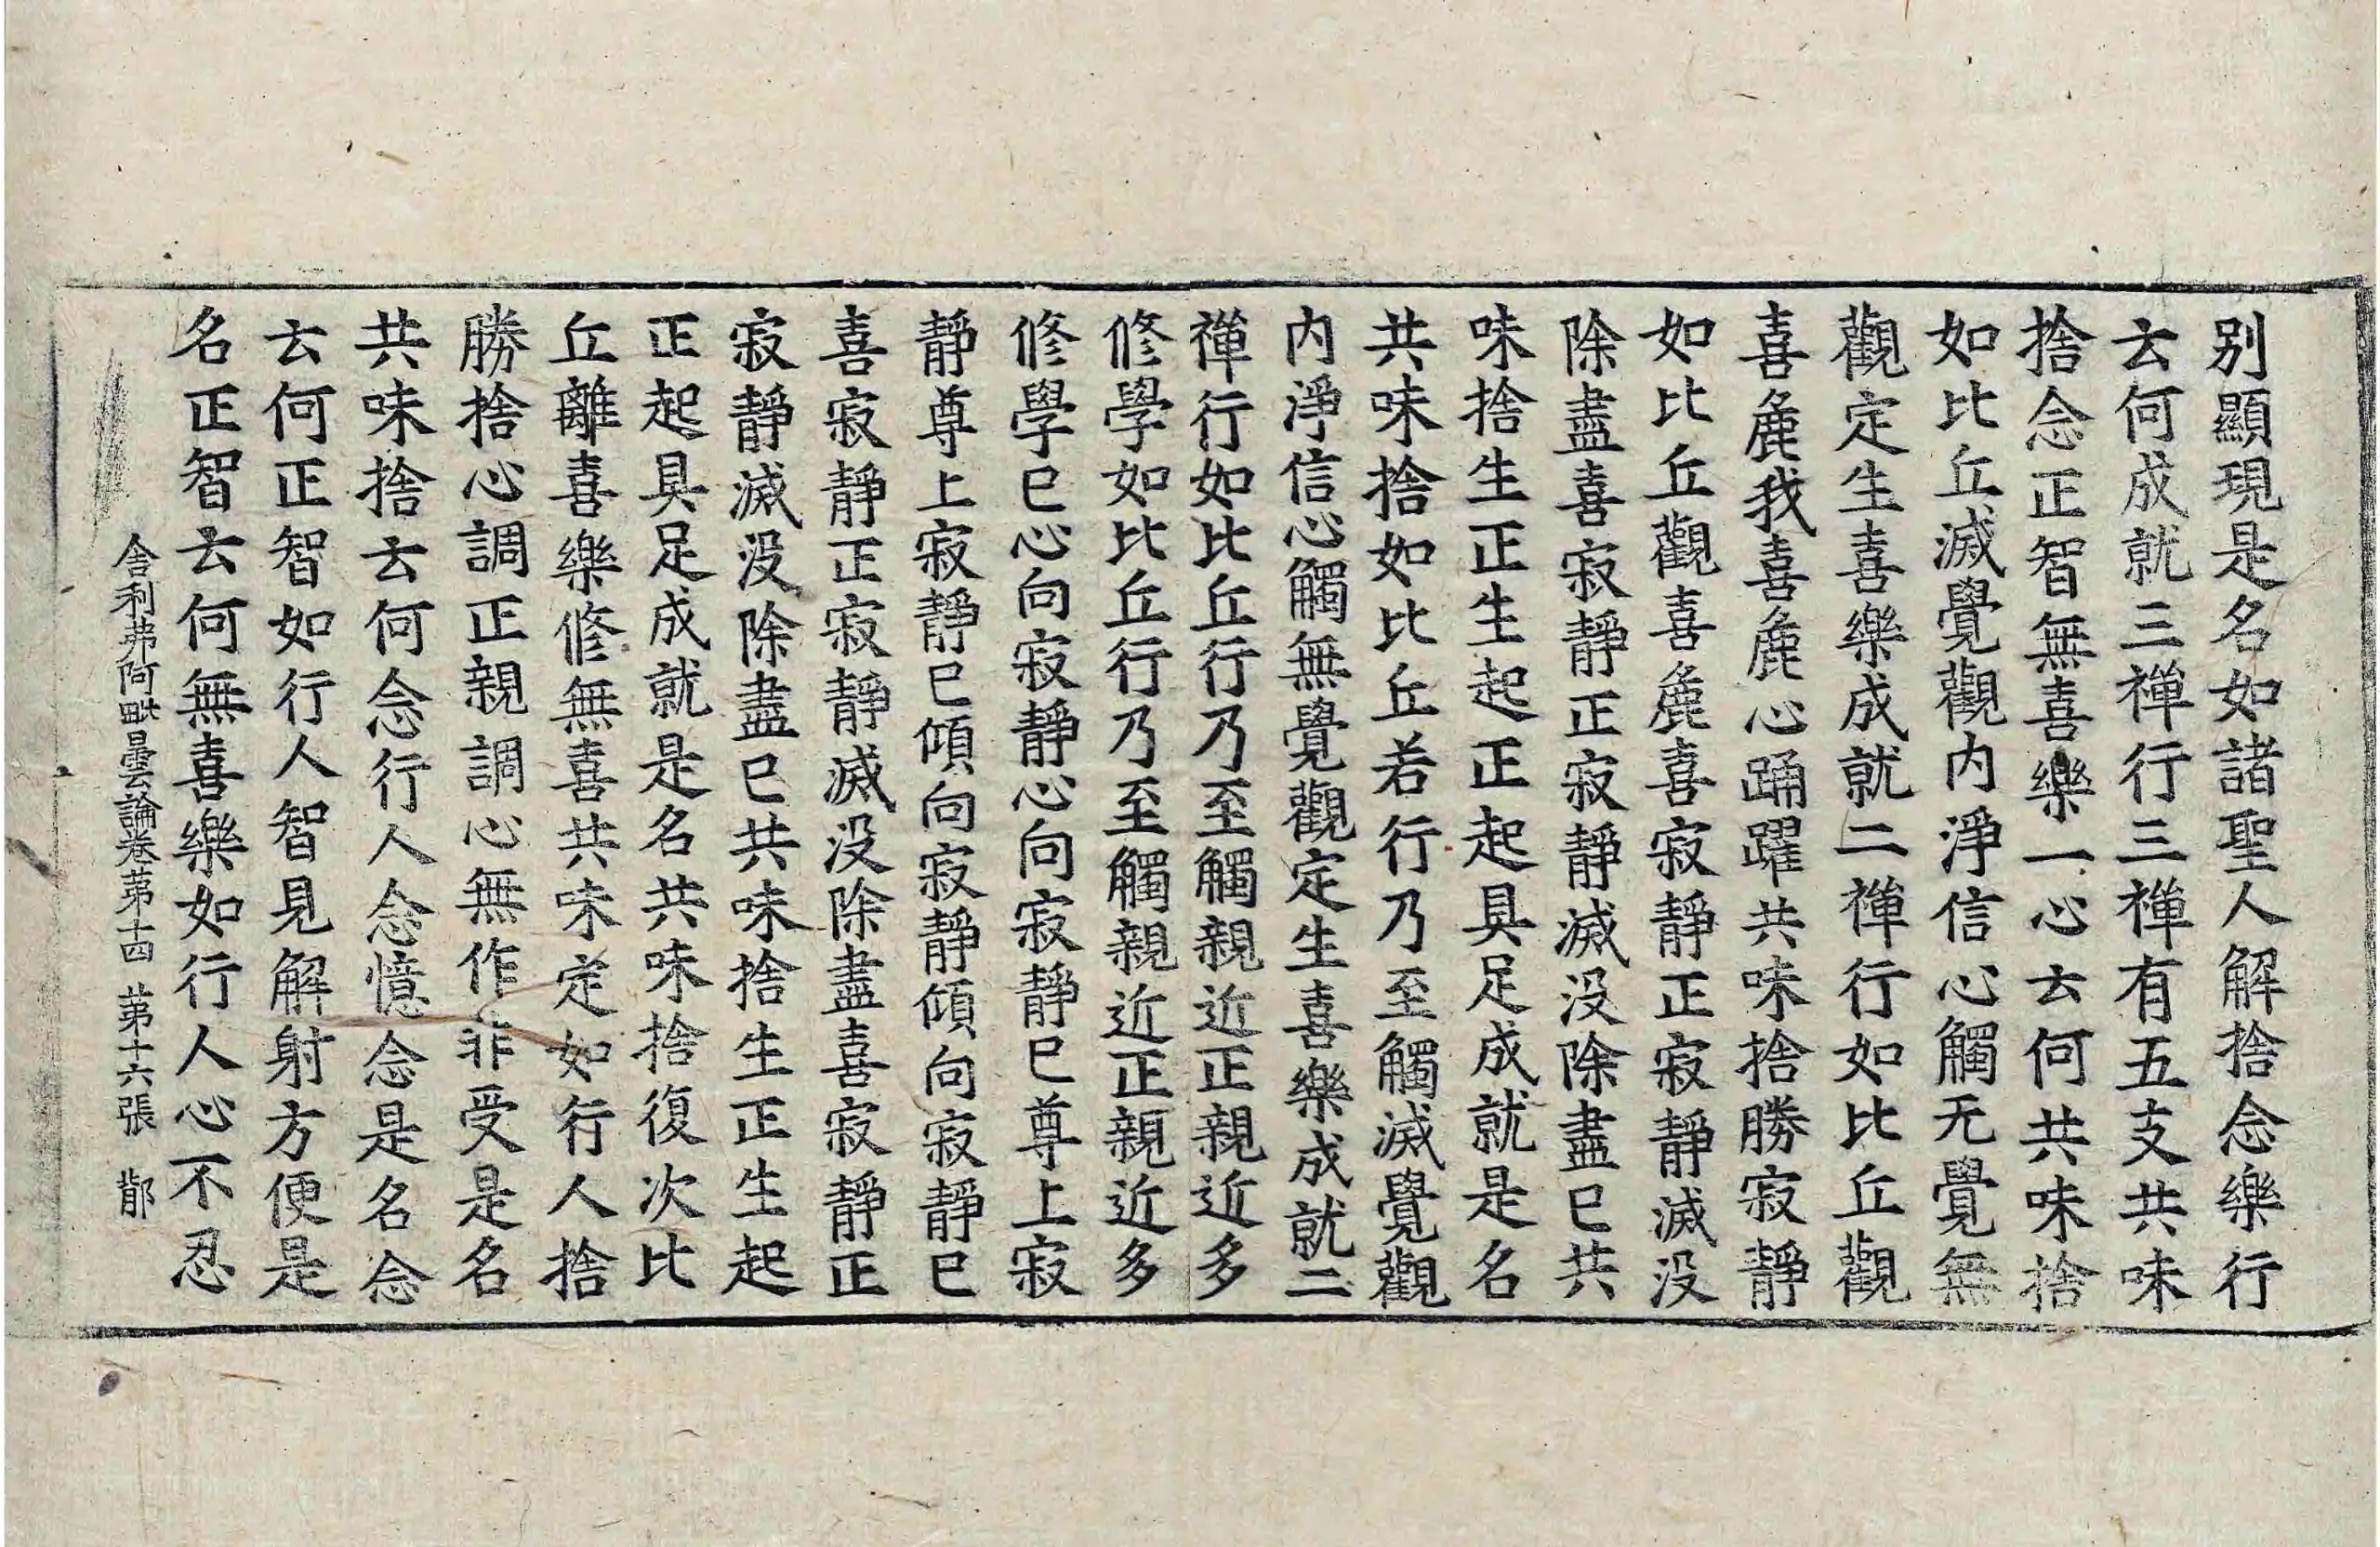 別顯現是名如諸聖人解捨念樂行
云何成就三禪行三禪有五支共味
捨念正智無喜樂一心云何共味捨
如比丘滅覺觀内淨信心觸无覺無
觀定生喜樂成就二禪行如比丘觀
喜麁我喜麁心踊躍共味捨勝寂靜
如比丘觀喜麁喜寂靜正寂靜滅没
除盡喜寂靜正寂靜滅没除盡已共
味捨生正生起正起具足成就是名
共味捨如比丘若行乃至觸滅覺觀
内淨信心觸無覺觀定生喜樂成就二
禪行如比丘行乃至觸親近正親近多
修學如比丘行乃至觸親近正親近多
修學已心向寂靜心向寂靜已尊上寂
靜尊上寂靜已傾向寂靜傾向寂靜已
喜寂靜正寂靜滅没除盡喜寂靜正
寂靜滅没除盡已共味捨生正生起
正起具足成就是名共味捨復次比
丘離喜樂修無喜共味定如行人捨
勝捨心調正親調心無作非受是名
共味捨云何念行人念憶念是名念
云何正智如行人智見解射方便是
名正智云何無喜樂如行人心不忍
舎利弗阿毗曇論卷苐十四 苐十六張 鄁